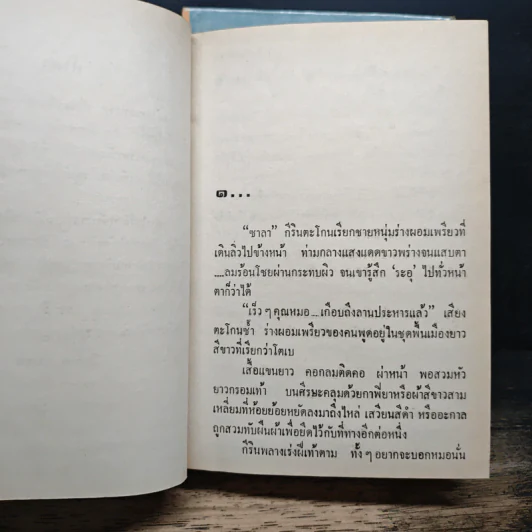 ๑...
“ซาลา” กีรินตะโกนเรียกชายหนุ่มร่างผอมเพรียวที่
เดินลิ่วไปข้างหน้า ท่ามกลางแสงแดดขาวพร่างจนแสบตา
....ลมร้อนโชยผ่านกระทบผิว จนเขารู้สึก ‘ระอุ’ ไปทั่วหน้า
ตาก็ว่าได้
“เร็วๆ คุณหมอ...เกือบถึงลานประหารแล้ว” เสียง
ตะโกนซ้ำ ร่างผอมเพรียวของคนพูดอยู่ในชุดพื้นเมืองยาว
สีขาวที่เรียกว่าโตเบ
เสื้อแขนยาว คอกลมติดคอ ผ่าหน้า พอสวมหัว
ยาวกรอมเท้า บนศีรษะคลุมด้วยกาฟียาหรือผ้าสีขาวสาม
เหลี่ยมที่ห้อยย้อยหยัดลงมาถึงไหล่ เสวียนสีดำ หรืออะกาล
ถูกสวมทับผืนผ้าเพื่อยึดไว้กับที่ทางอีกต่อหนึ่ง
กีรินพลางเร่งฝีเท้าตาม ทั้งๆ อยากจะบอกหมอนั่น